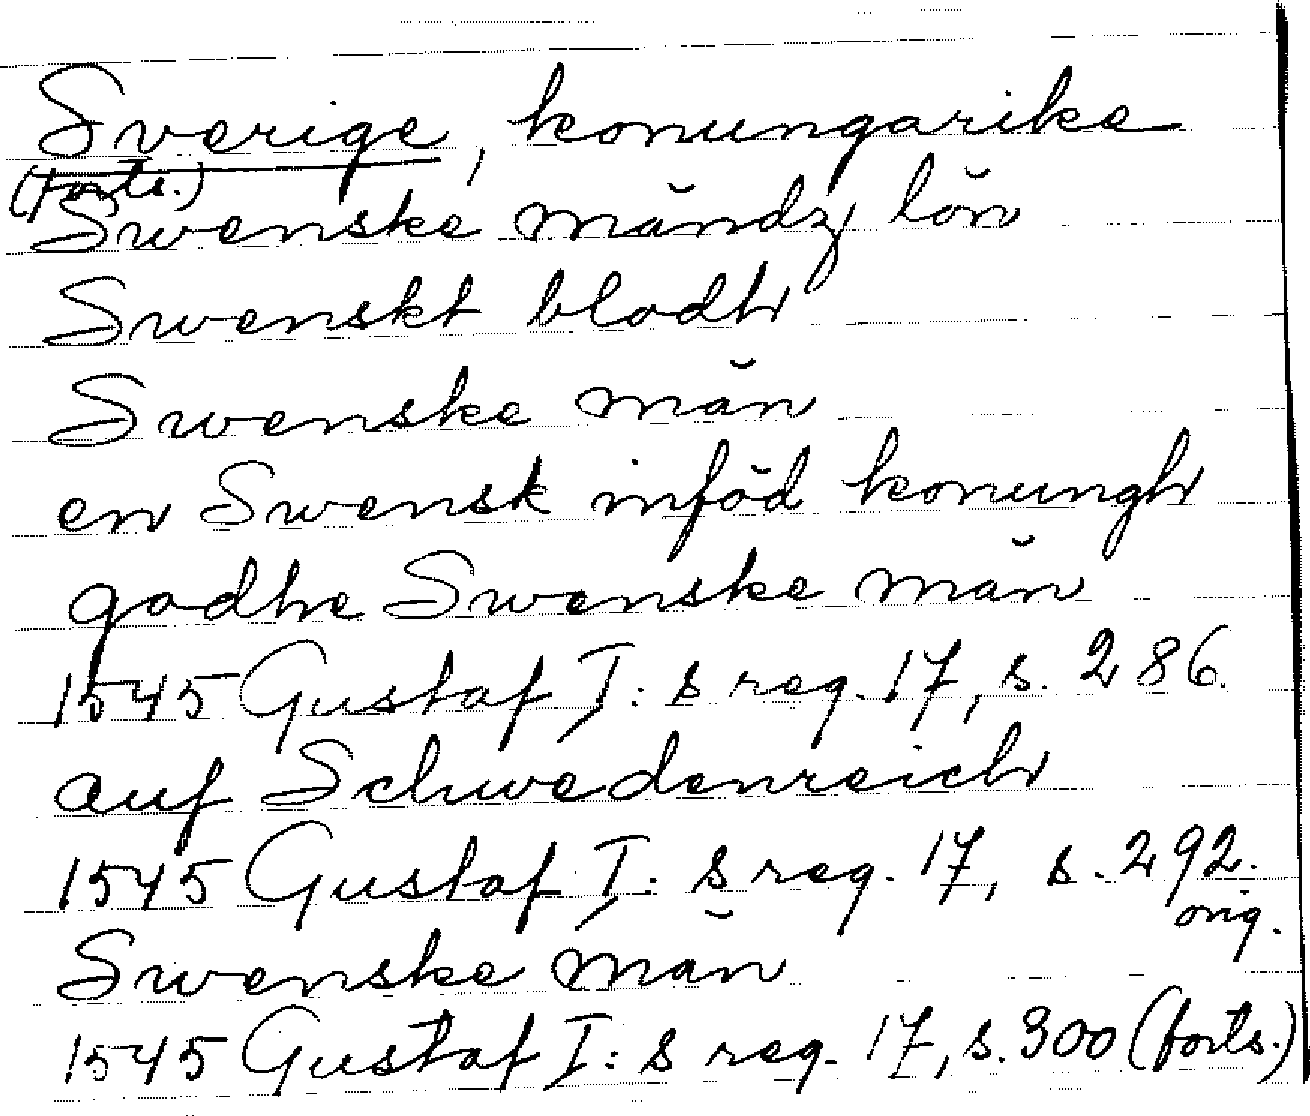 Sverige, konungarike
(forts.)
Swenske mändz lön
Swenskt blodh
Swenske män
en Swensk inföd konungh
godhe Swenske män
1545 Gustaf I: s reg. 17, s. 286.
auf Schwedenreich
1545 Gustaf I: s reg. 17, s. 292.
orig.
Swenske män
1545 Gustaf I: s reg. 17, s. 300 (forts.)